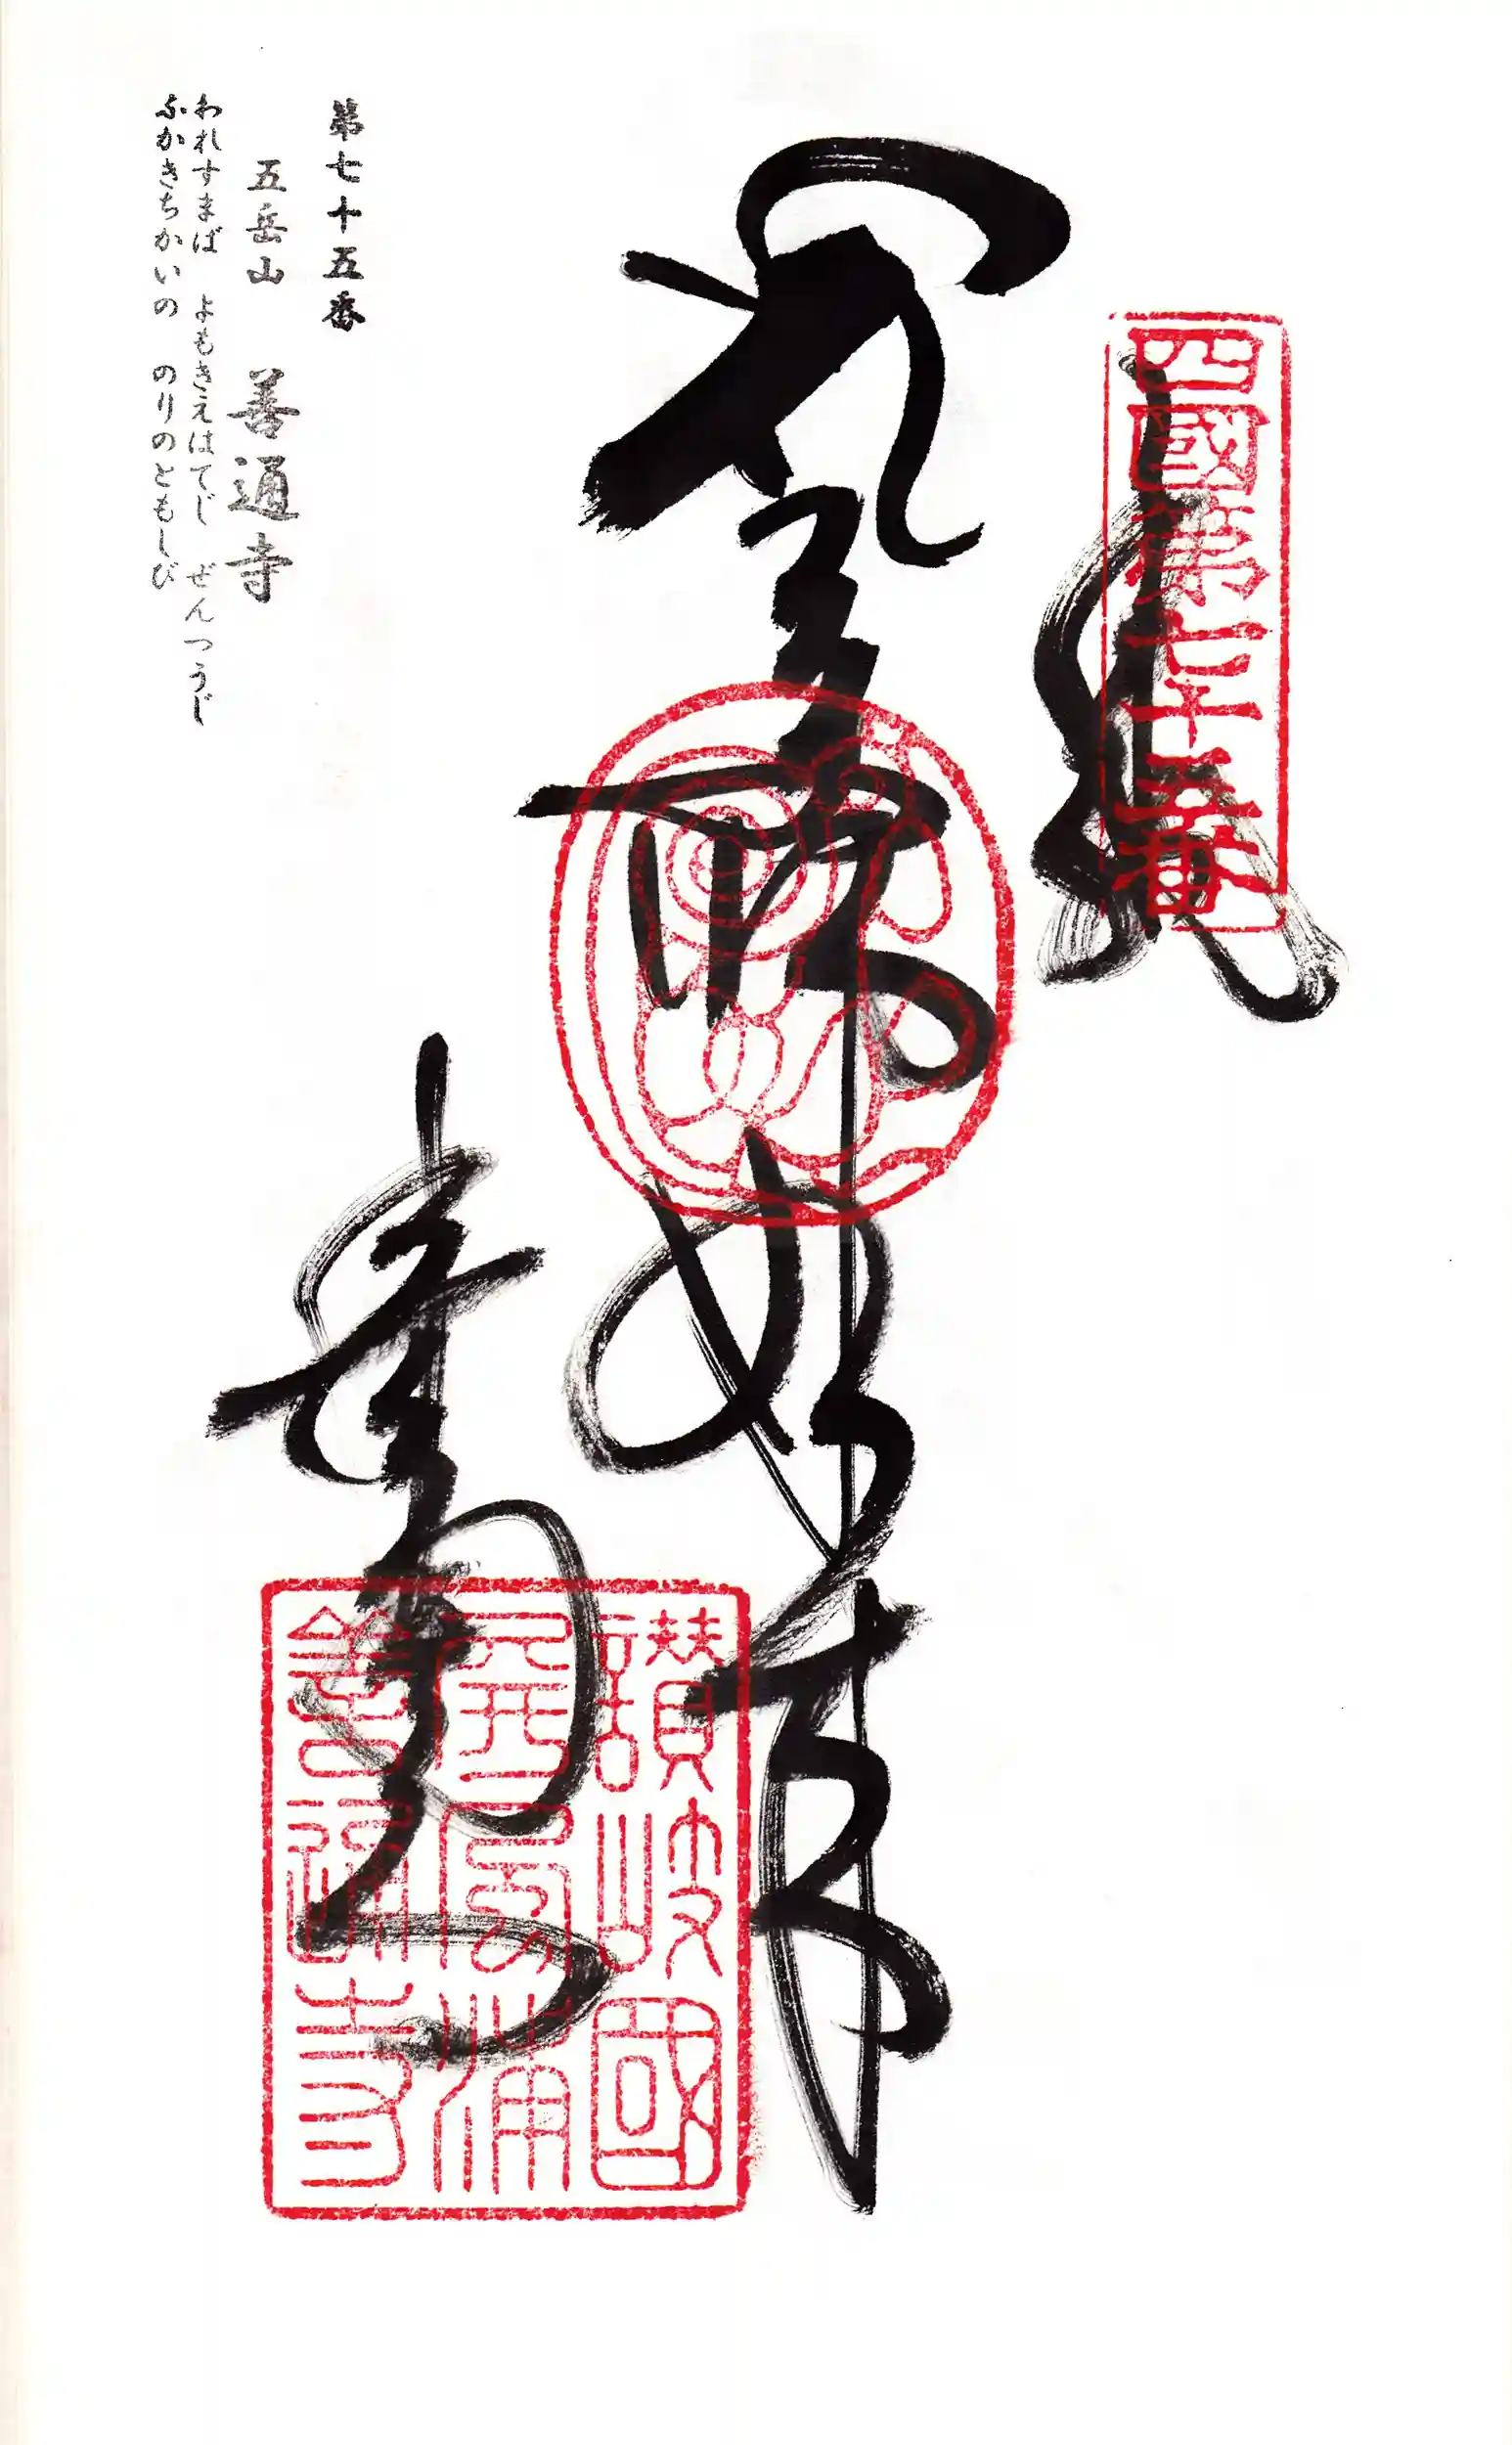 四國第七十五番
奉納
薬師如来
善通寺
讃岐國
屏風浦
善通寺
第七十五番
五岳山 善通寺
われすまば よもきえはてじ ぜんつうじ
ふかきちかいの のりのともしび